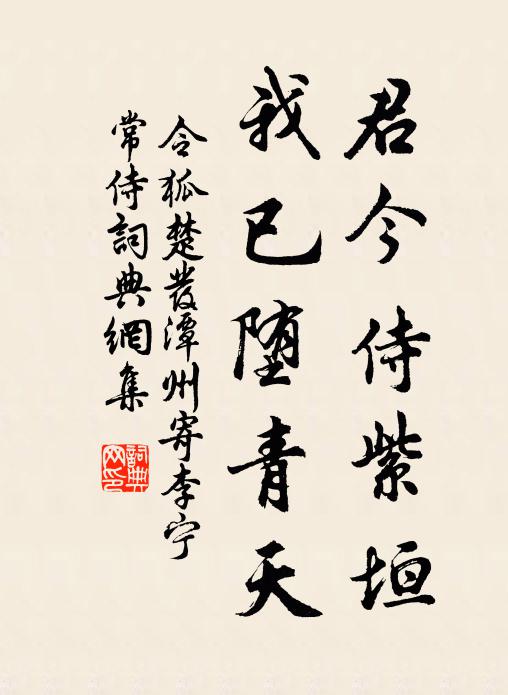 君今侍紫垣
我已堕青天
令狐楚發潭州寄李宁
常侍詞典網集
詞典
网印